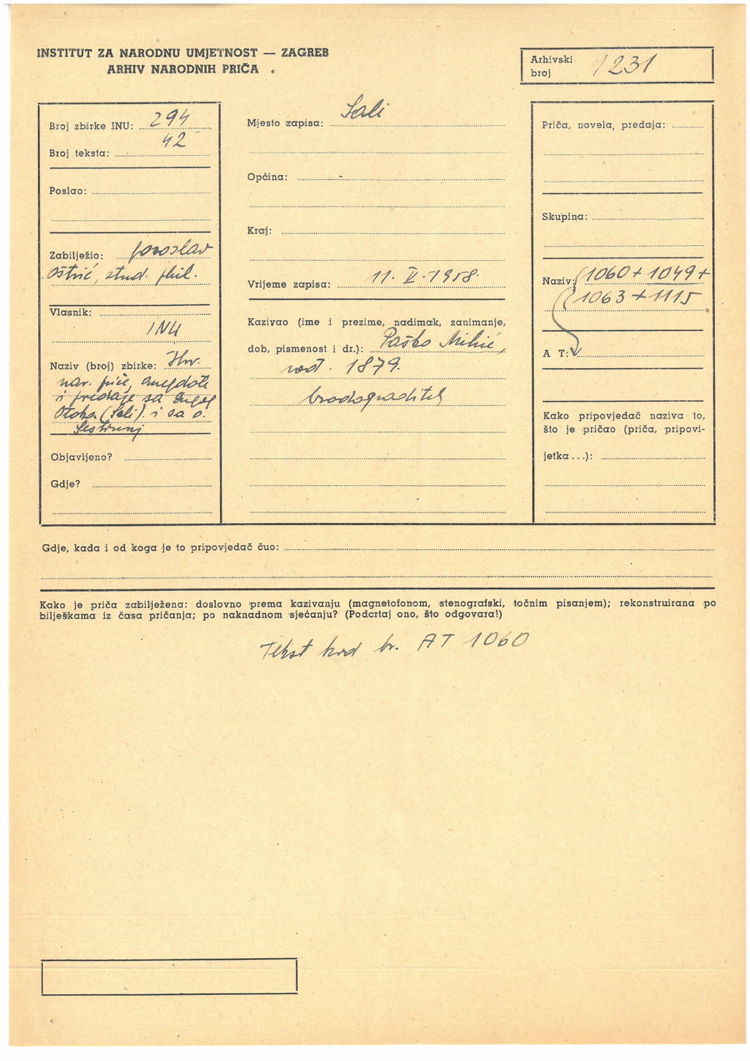 INSTITUT ZA NARODNU UMJETNOST — ZAGREB
ARHIV NARODNIH PRIČA
Arhivski broj 1231
Broj zbirke INU: 294
Broj teksta: 42
Poslao:
Zabilježio: Joroslav
Oštrić, stud. phil.
Vlasnik:
INU
Naziv (broj) zbirke: Hrv.
nar. priče, anegdote
i predaje sa Dugog
Otoka (Sali) i sa o.
Sestrunj
Objavljeno?
Gdje?
Mjesto zapisa: Sali
Općina: -
Kraj:
Vrijeme zapisa: 11. II. 1958.
Kazivao (ime i prezime, nadimak, zanimanje,
dob, pismenost i dr.): Paško Mihić,
rođ. 1879.
brodograditelj
Priča, novela, predaja:
Skupina:
Naziv: (1060 + 1049 +
1063 + 1115
A T:
Kako pripovjedač naziva to,
što je pričao (priča, pripovi-
jetka...):
Gdje, kada i od koga je to pripovjedač čuo:
Kako je priča zabilježena: doslovno prema kazivanju (magnetofonom, stenografski, točnim pisanjem); rekonstruirana po
bilješkama iz časa pričanja; po naknadnom sjećanju? (Podcrtaj ono, što odgovara!)
Tekst kod br. AT 1060